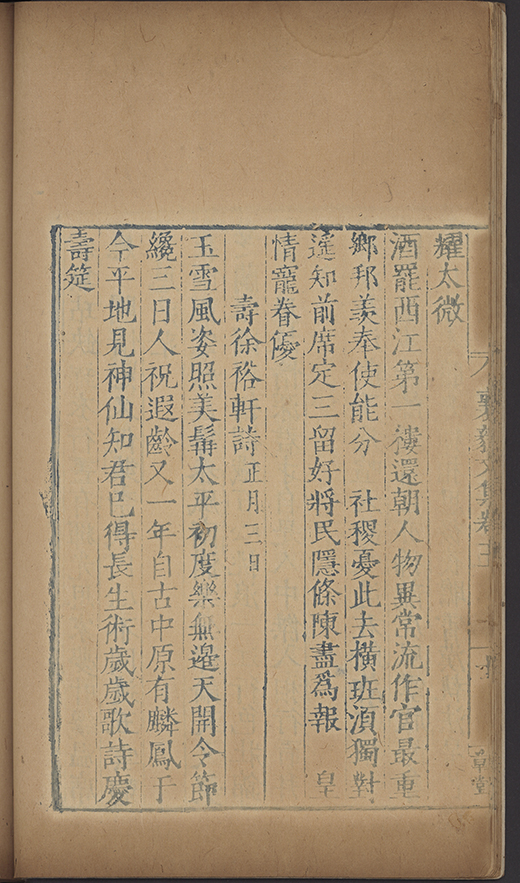 耀太微
酒罷西江第一樓還朝人物異常流作官最重
鄉邦羡奉使能分 社稷憂此去橫班湏獨對
遥知前席定三留好將民隱條陳盡爲報 皇
情寵眷優
壽徐裕軒詩 正月三日
玉雪風姿照美髯太平初度樂無邉天開令節
纔三日人祝遐齡又一年自古中原有麟鳳于
今平地見神仙知君已得長生術歲歲歌詩慶
壽筵